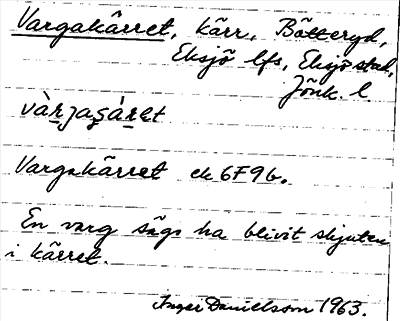 Vargakärret, kärr, Bätteryd,
Eksjö lfs, Eksjö stad,
Jönk. l.
vàr̲jaʂár̲et
Vargakärret ek 6F9b.
En varg sägs ha blivit skjuten
i kärret.
Inger Danielsson 1963.